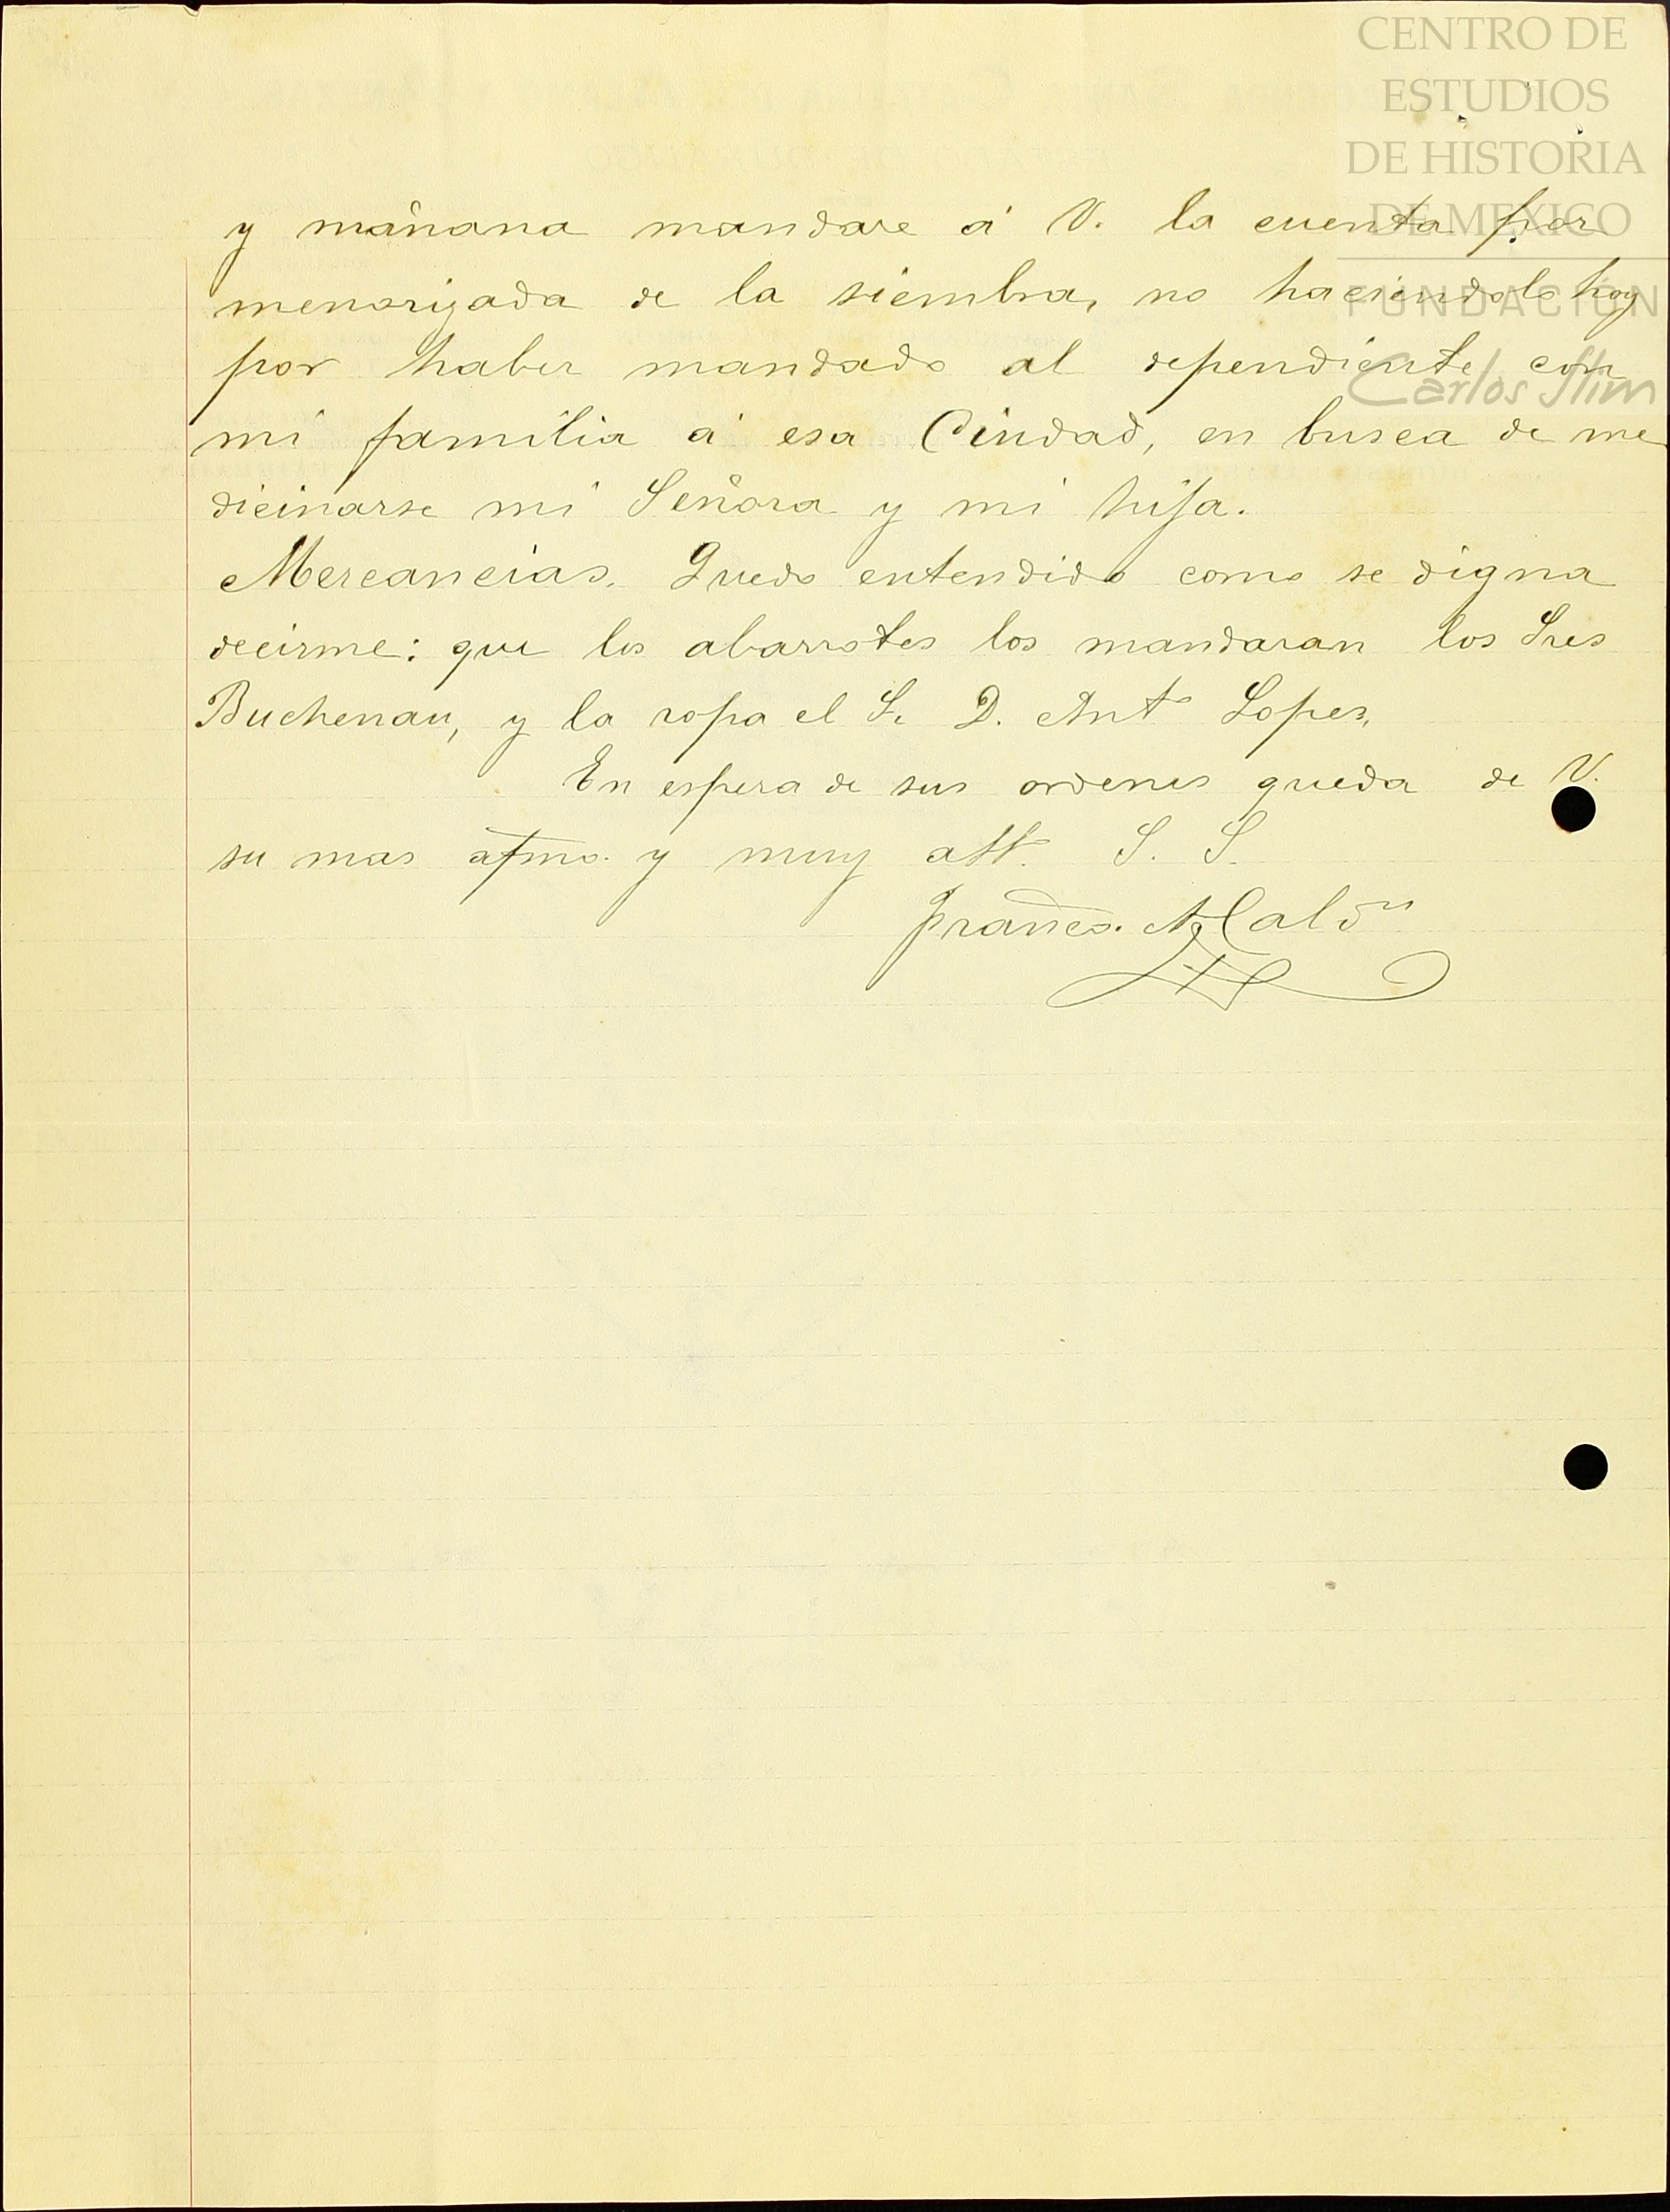 CENTRO DE
ESTUDIOS
DE HISTORIA
DE MEXICO
FUNDACIÓN
Carlos Slim
y mañana mandare á V. la cuenta por
menorizada de la siembra, no haciendolo hoy
por haber mandado al dependiente con
mi familia á esa Ciudad, en busca de me
dicinarse mi Señora y mi hija.
Mercancias. Quedo entendido como se digna
decirme: que los abarrotes los mandaran los Sres
Buchenau, y la ropa el S. D. Anto Lopes,
En espera de sus ordenes queda de V.
su mas afmo. y muy att. S. S.
Franco.